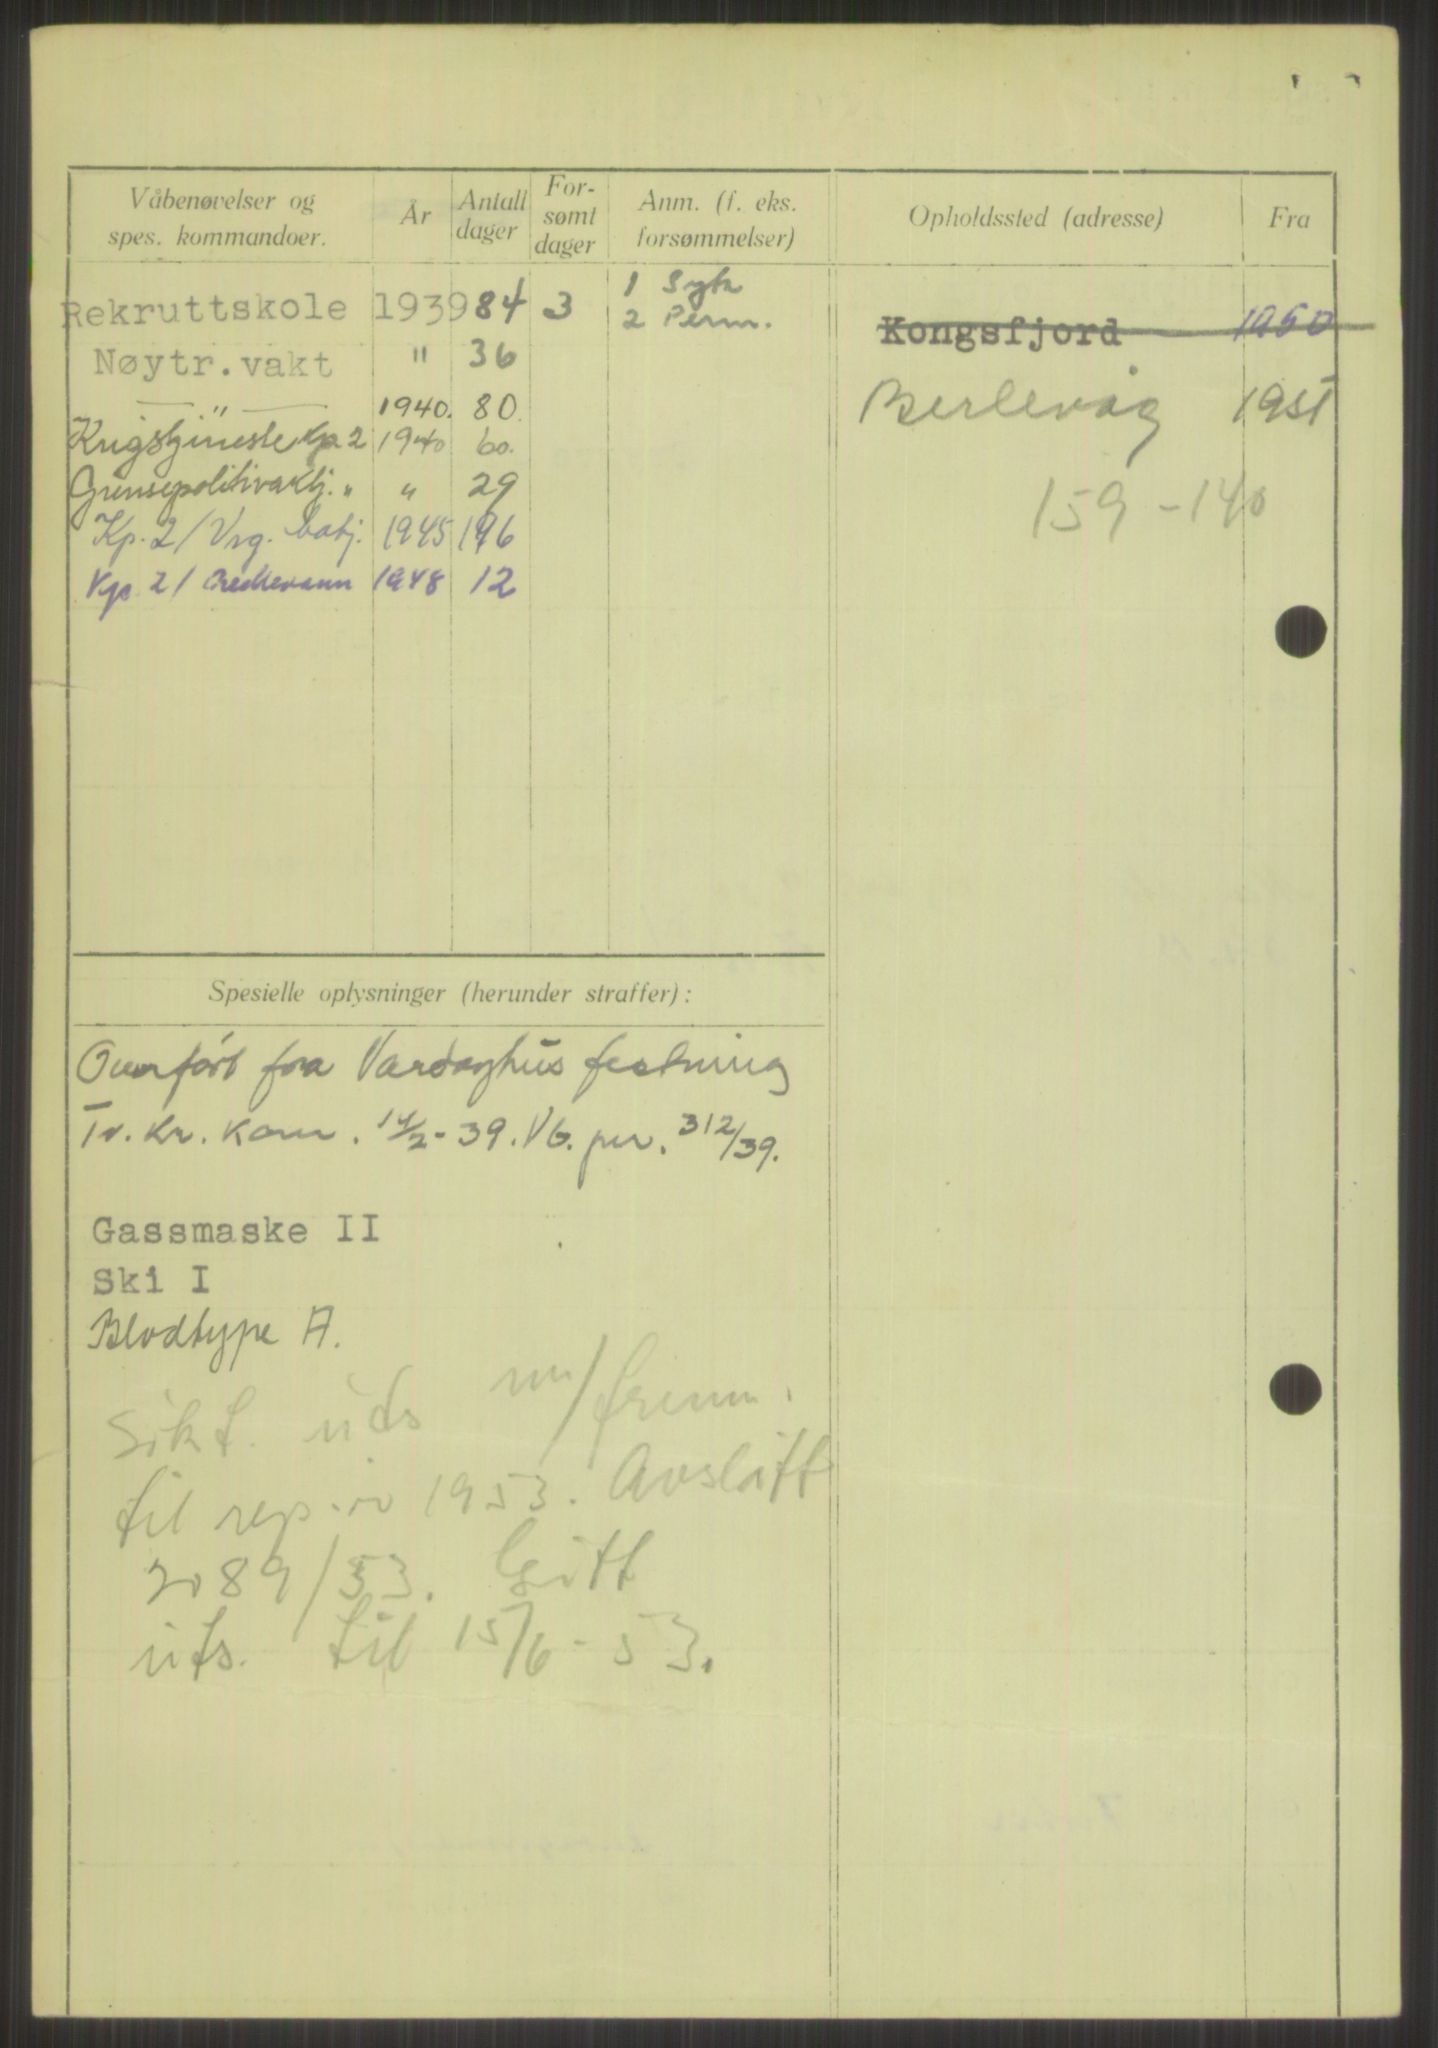 Våbenøvelser og
spes. kommandoer.
År
Antall
dager
For-
sømt
dager
Anm. (f. eks.
forsømmelser)
Opholdssted (adresse)
Fra
Rekruttskole 1939 84 3 1 Syk
2 Perm.
Nøytr.vakt " 36
— " — 1940. 80.
Krigstjineste Kp 2 1940 60.
Grensepolitivaktj. " " 29
Kp. 2/ Vrg. batj. 1945 196
Kp. 2/ 1948 12
Kongsfjord 1950
Berlevåg 1951
159-140
Spesielle oplysninger (herunder straffer):
Overført fra Vardøyhus festning
Tr. Kr. Kom. 14/2-39. Vb. per. 312/39.
Gassmaske II
Ski I
Blodtype A.
Søkt. uts m/fremm.
til rep.øv 1953. Avslått
2089/53. Gitt
uts. til 15/6-53.